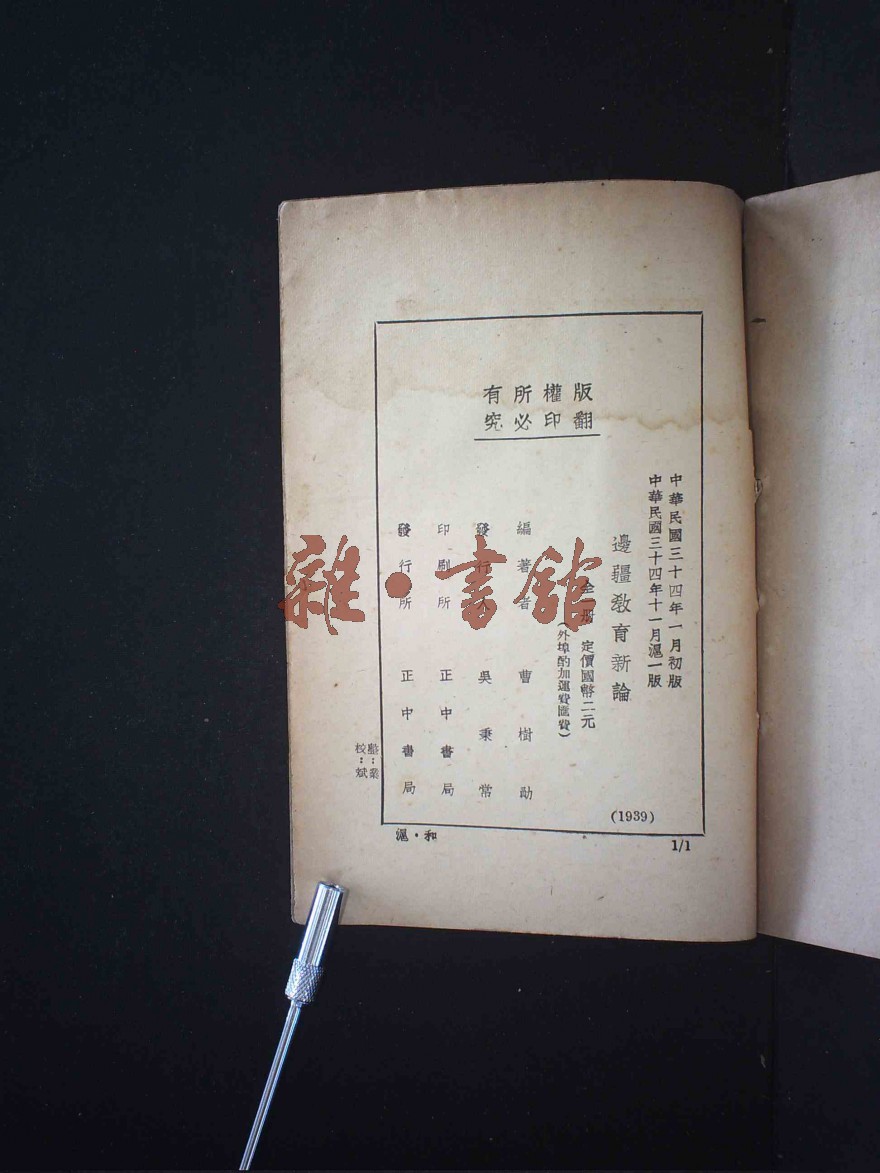 版權所有
翻印必究
中華民國三十四年一月初版
中華民國三十四年十一月滬一版
邊疆教育新論
全一册 定價國幣二元
(外埠酌加運費匯費)
編著者 曹樹勛
發行人 吳秉常
印刷所 正中書局
發行所 正中書局
(1939)
校:斌
滬·和
1/1
雜·書館